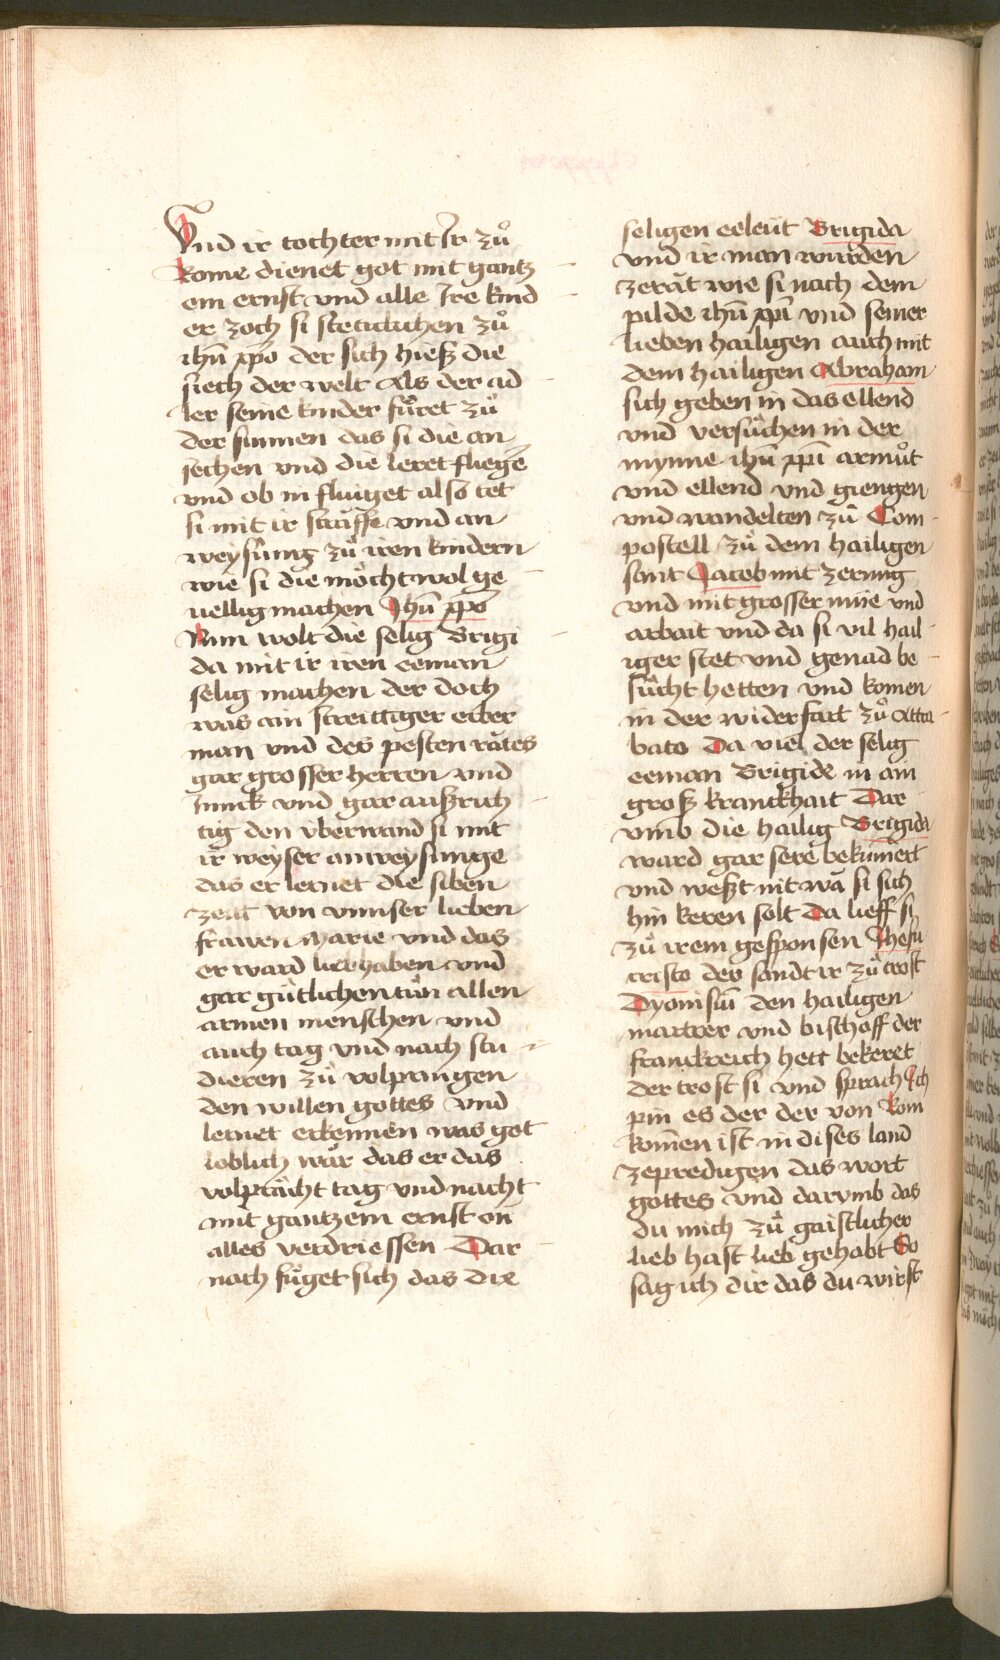 Vnd ir tochter mit Ir zuͦ
Rome dienet got mit gantz
em ernst vnd alle Ire kind
er zoch si stetiklichen zuͦ
ihū xp̄o der sich hieß die
siech der welt Als der ad
ler seine kinder fuͤret zuͦ
der sunnen das si die an
sechen vnd die leret fliegē
vnd ob in fluiget also tet
si mit ir straͧffe vnd an
weysung zuͦ iren kindern
wie si die moͤcht wol ge
uellig machen Ihū xp̄o
Nun wolt die selig Brigi
da mit ir iren eeman
selig machen der doch
was ain streittiger erber
man vnd des pesten rätes
gar grosser herren vnd
Junck vnd gar außrich
tig den vberwand si mit
ir weyser anweysunge
das er lernet die siben
zeitt von vnnser lieben
frawen Marie vnd das
er ward liebhaben vnd
gar guͤtlichen tuͦn allen
armen menschen vnd
auch tag vnd nach stu
dieren zuͦ volpringen
den willen gottes vnd
lernet erkennen was got
loblich waͤr das er das
volpraͤcht tag vnd nacht
mit gantzem ernst on
alles verdriessen Dar
nach fuͤget sich das die
seligen eeleut Brigida
vnd ir man wurden
zerät wie si nach dem
pilde ihū xp̄i vnd seiner
lieben hailigen auch mit
dem hailigen Abraham
sich geben in das ellend
vnd versuͦchen in der
mynne ihū xp̄i armuͦt
vnd ellend vnd giengen
vnd wandelten zuͦ Com
postell zuͦ dem hailigen
sant Jacob mit zerung
vnd mit grosser mue vnd
arbait vnd da si vil hail
iger stet vnd genad be
suͦcht hetten vnd komen
in der widerfart zuͦ Attra
bato Da viel der selig
eeman Brigide in ain
groß kranckhait Dar
vmb die hailig Brigida
ward gar sere bekūmert
vnd weßt nit wa si sich
hin keren solt Da lieff si
zuͦ irem gesponsen Jhesu
cristo der sandt ir zuͦ trost
Dyonisiū den hailigen
martrer vnd bischoff der
franckreich hett bekeret
der trost si vnd sprach Ich
pin es der der von Rom
komen ist in dises land
zepredigen das wort
gottes vnd darvmb das
du mich zuͦ gaistlicher
lieb hast lieb gehabt So
sag ich dir das du wirst